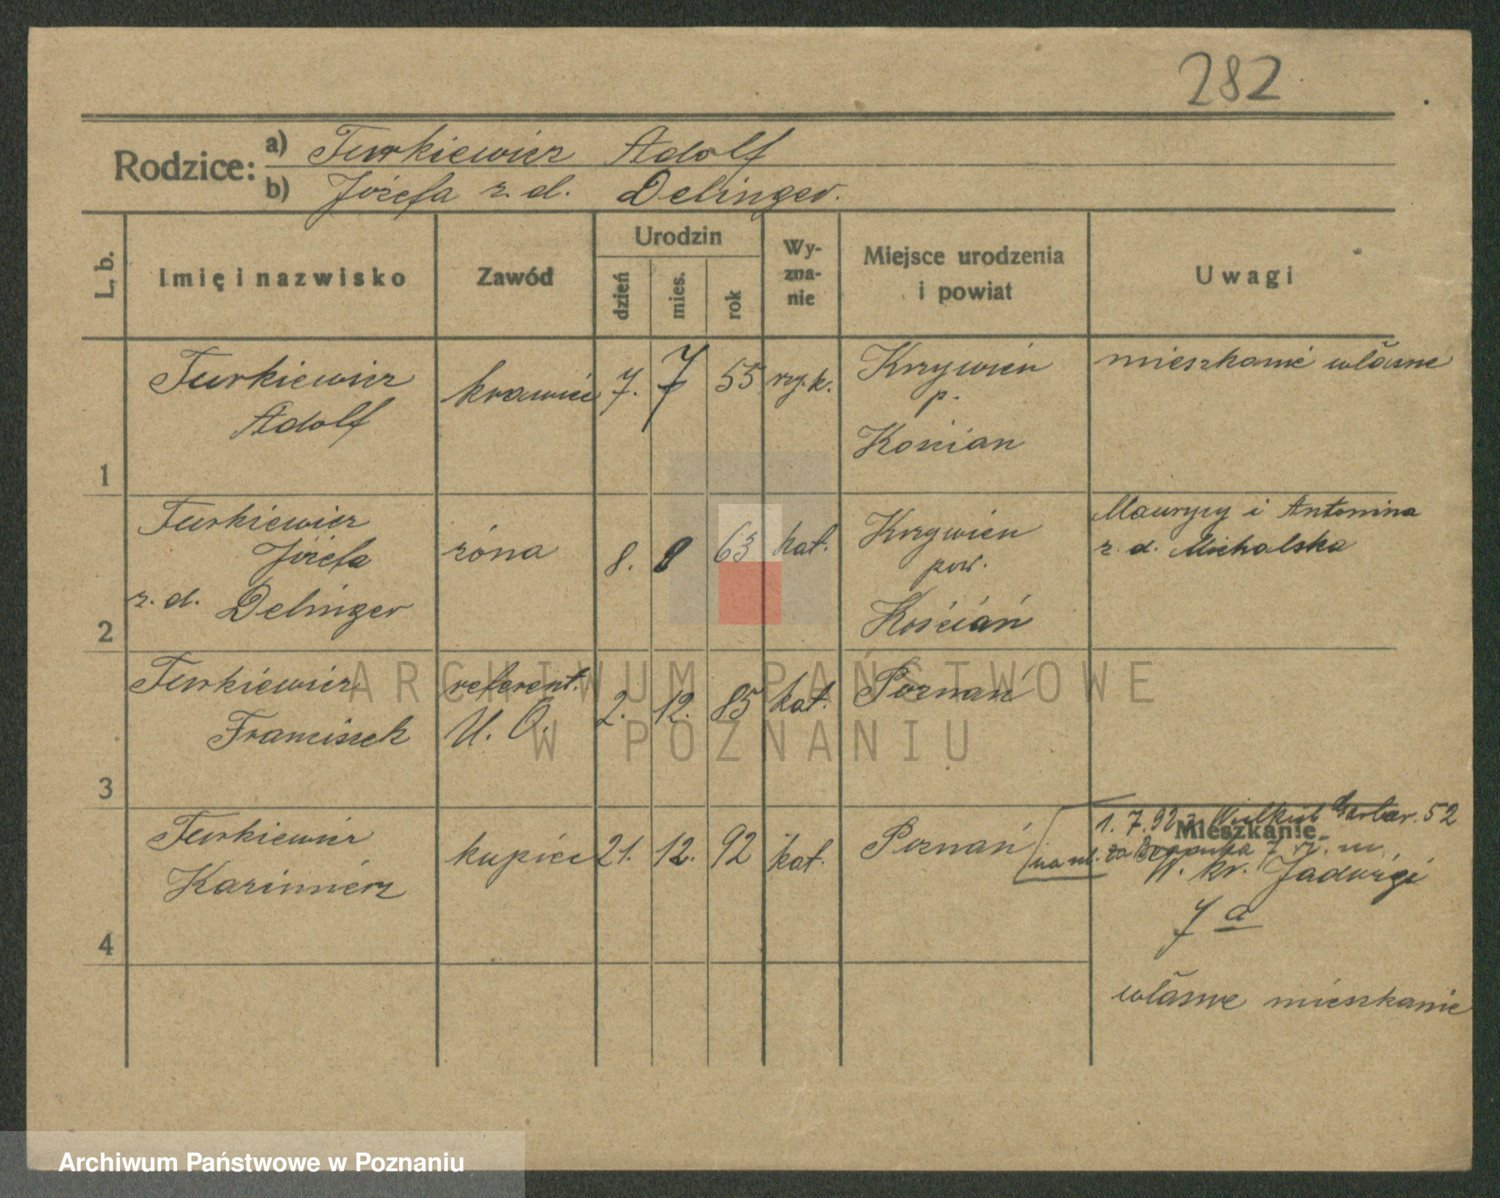 282
Rodzice: a) Turkiewicz Adolf
b) Józefa z. d. Delinger.
L. b.
Imię i nazwisko
Zawód
Urodzin
dzień
mies.
rok
Wy-
zna-
nie
Miejsce urodzenia
i powiat
Uwagi
1
Turkiewicz
Adolf
krawiec
7.
7
55
rzy. k.
Krzywień
p.
Kościan
mieszkanie własne
2
Turkiewicz
Józefa
z. d. Delinger
żona
8.
8
63
kat.
Krzywień
pow.
Kościań
Maurycy i Antonina
z. d. Michalska
3
Turkiewicz
Franciszek
referent.
U. O.
2.
12.
85
kat.
Poznań
4
Turkiewicz
Kazimierz
kupiec
21.
12.
92
kat.
Poznań
1. 7. 92 z Garbar. 52
Mieszkanie
na ul. 7
W. kr. Jadwigi
7 a
własne mieszkanie
ARCHIWUM PAŃSTWOWE
W POZNANIU
Archiwum Państwowe w Poznaniu